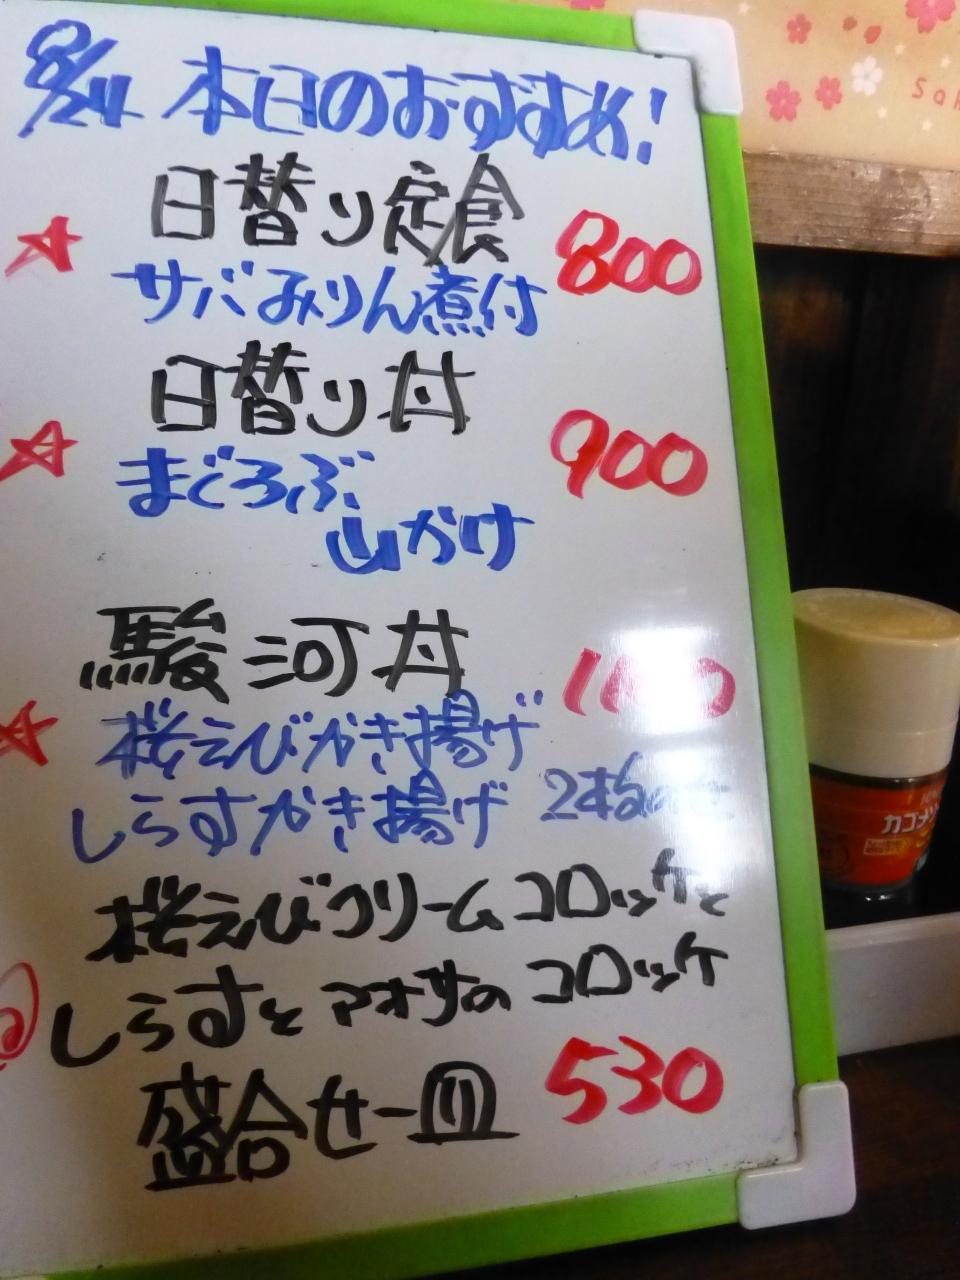 8/24 本日のおすすめ!
日替り定食
800
サバみりん煮付
日替り丼
900
まぐろぶ
山かけ
駿河丼
桜えびかき揚げ
しらすかき揚げ 2枚のせ
桜えびクリームコロッケと
しらすとアオサのコロッケ
盛合せ一皿
530
カゴメ